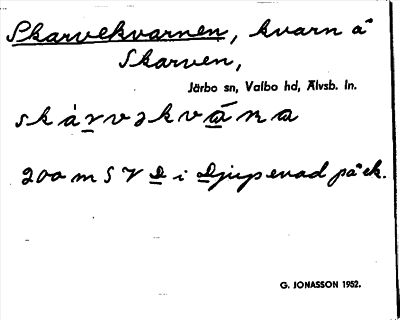 Skarvekvarnen, kvarn å
Skarven,
Järbo sn, Valbo hd, Älvsb. ln.
200 m S V D i Djupevad på ek.
G. JONASSON 1952.